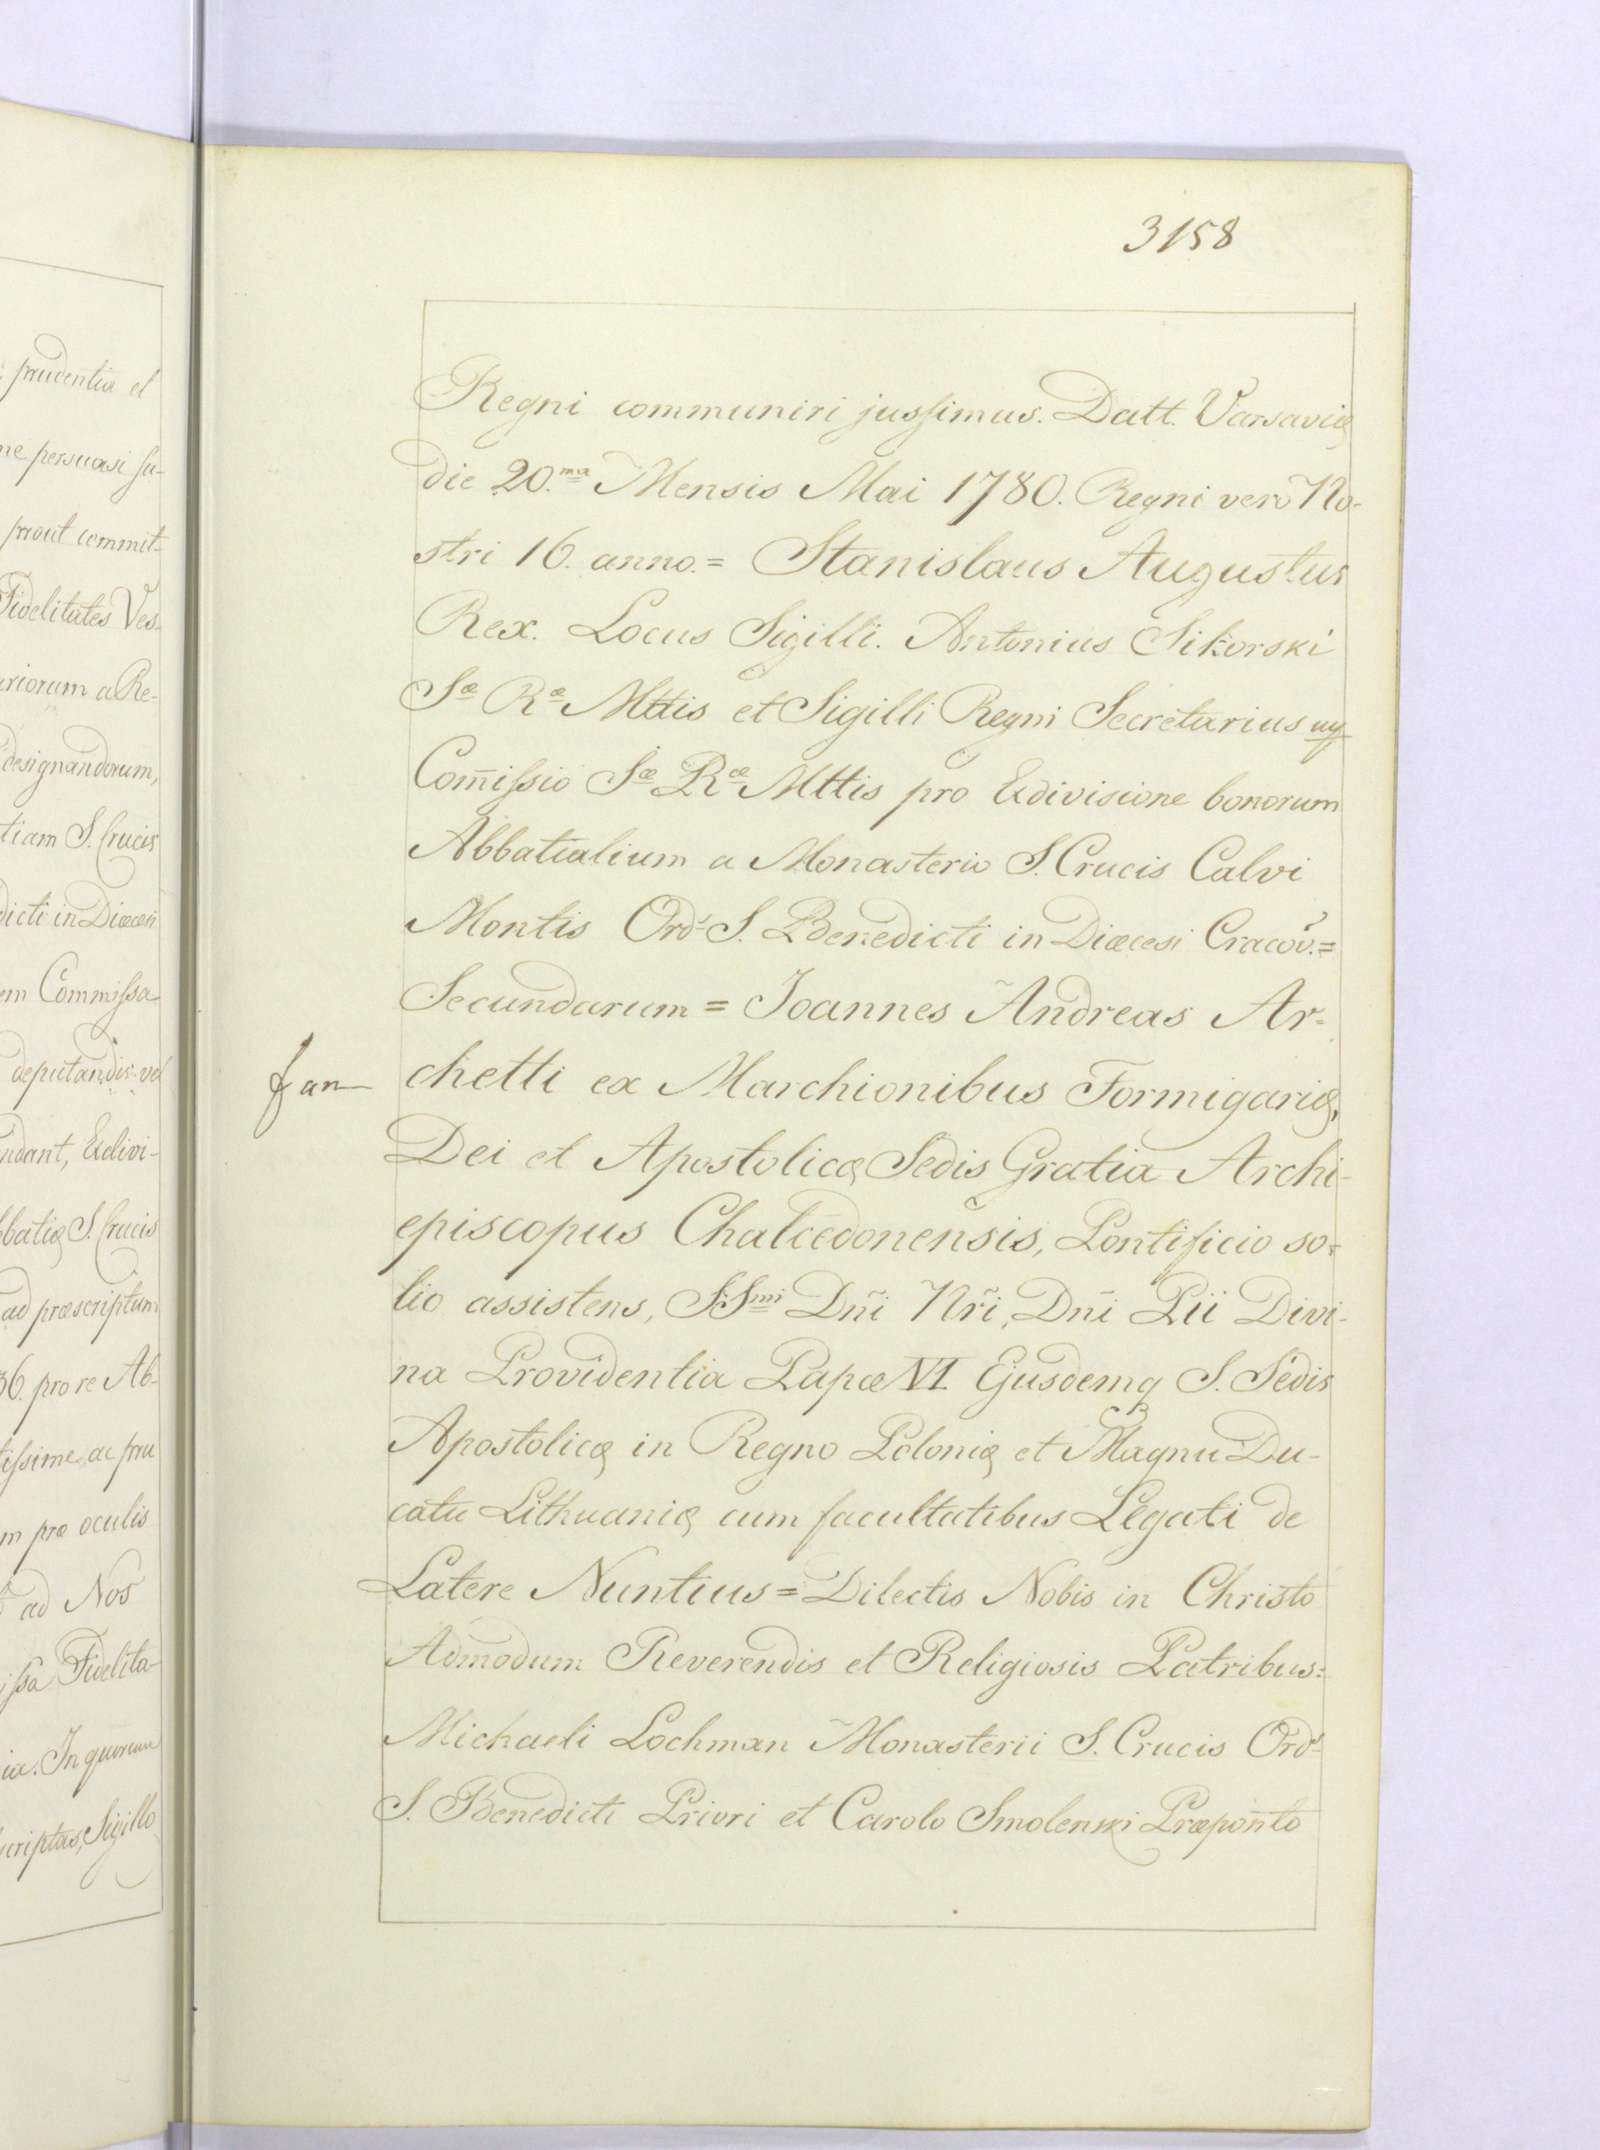 prudentia et
ne persuasi su-
prout commit-
Fidelitates Ves-
riorum a Re-
designandorum,
tiam S. Crucis
dicti in Diœcesi
em Commissa-
deputandis vel
ndant, Exdivi-
batię S. Crucis
ad præscriptum
36. pro re Ab-
tissime, ac pru
m præ oculis
ad Nos
issa Fidelita-
ia. In quorum
scriptas, Sigillo
3158
Regni communiri jussimus. Datt. Varsavię
die 20.ma Mensis Mai 1780. Regni vero No-
stri 16. anno. = Stanislaus Augustus
Rex. Locus Sigilli. Antonius Sikorski
Sæ Ræ Mttis et Sigilli Regni Secretarius
Com̃issio Sæ Ræ Mttis pro Exdivisione bonorum
Abbatialium a Monasterio S. Crucis Calvi
Montis Ord. S. Benedicti in Diœcesi Cracov̄. =
Secundarum = Joannes Andreas Ar-
chetti ex Marchionibus Formigarię,
Dei et Apostolicę Sedis Gratia Archi-
episcopus Chalcedonensis, Pontificio so-
lio assistens, SSmi Dñi Nr̃i, Dñi Pii Divi-
na Providentia Papæ VI Ejusdemq S. Sedis
Apostolicę in Regno Polonię et Magnu Du-
catu Lithuanię cum facultatibus Legati de
Latere Nuntius = Dilectis Nobis in Christo
Admodum Reverendis et Religiosis Patribus:
Michaeli Lochman Monasterii S. Crucis Ord.
S. Benedicti Priori et Carolo Smolenski Præpoñto